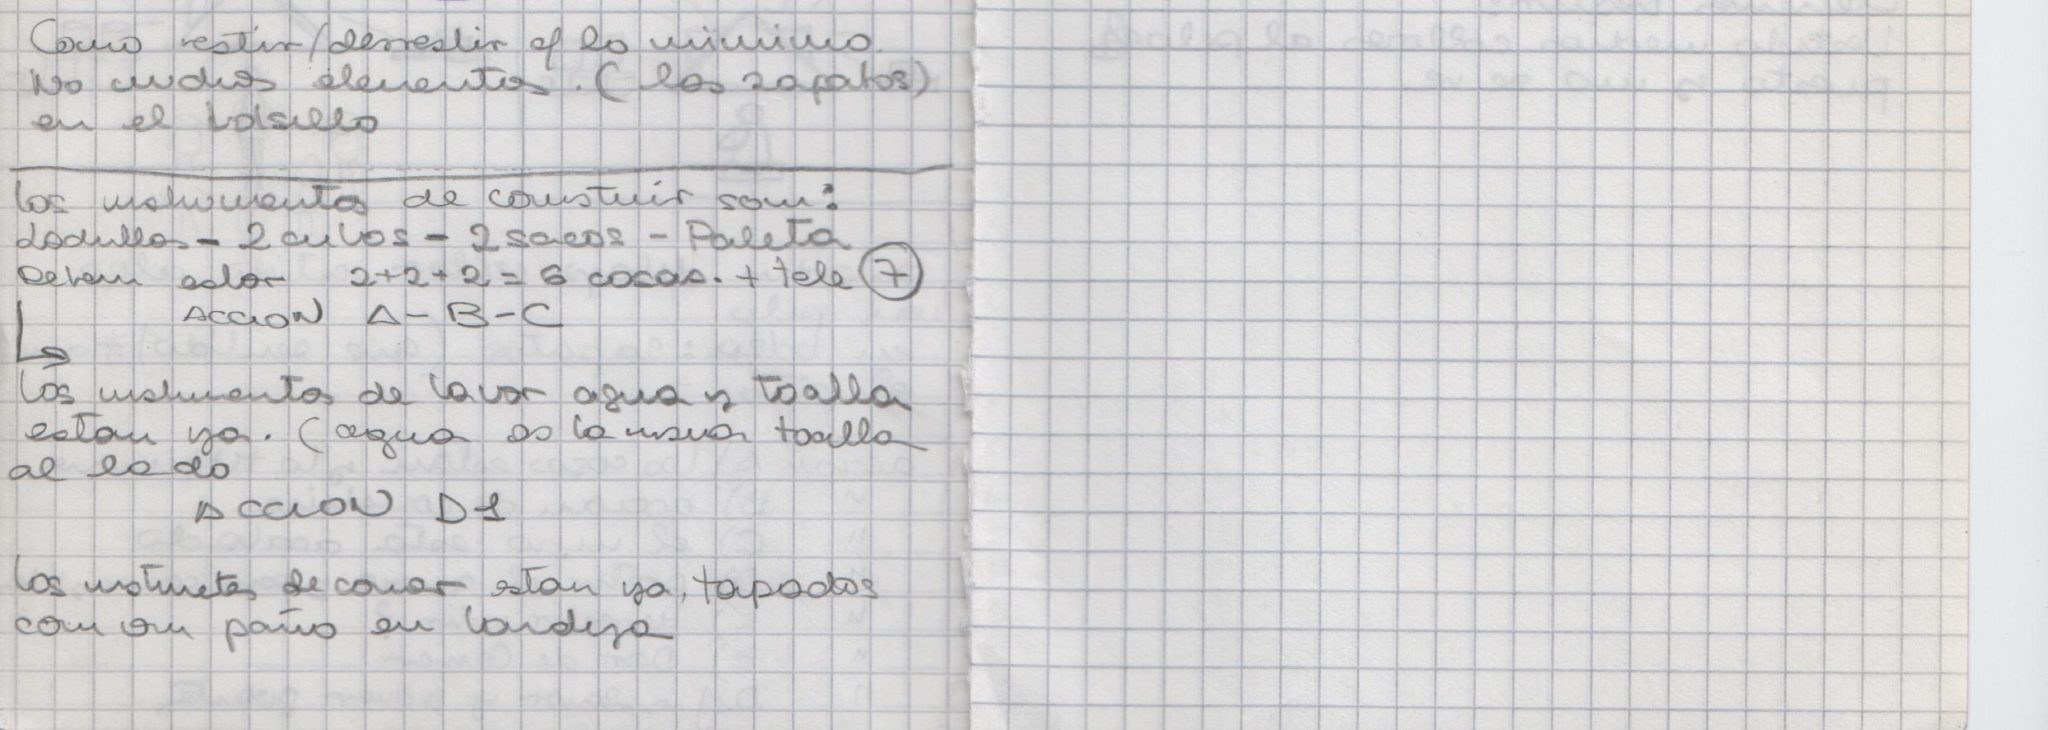 Como vestir/desvestir a lo minimo.
No muchos elementos. (los zapatos)
en el bolsillo
los instrumentos de construir son:
Ladrillos - 2 cubos - 2 sacos - Paleta
Deben estar 2+2+2=6 cosas. + tele 7
ACCION A-B-C
los instrumentos de lavar agua y toalla
estan ya. (agua es la misma toalla
al lado
ACCION D1
los instrumetos de comer estan ya, tapados
con un paño en bandeja